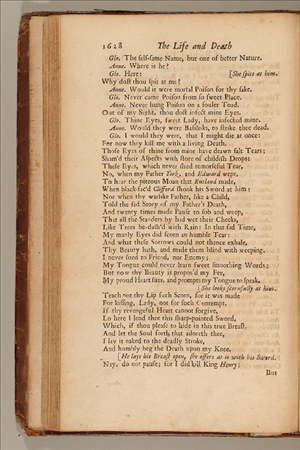 1628 The Life and Death
Glo. The self-same Name, but one of better Nature.
Anne. Where is he?
Glo. Here: [She spits at him.
Why dost thou spit at me?
Anne. Would it were mortal Poison for thy sake.
Glo. Never came Poison from so sweet Place.
Anne. Never hung Poison on a fouler Toad.
Out of my Sight, thou dost infect mine Eyes.
Glo. Thine Eyes, sweet Lady, have infected mine.
Anne. Would they were Basilisks, to strike thee dead.
Glo. I would they were, that I might die at once:
For now they kill me with a living Death.
Those Eyes of thine from mine have drawn salt Tears:
Sham'd their Aspects with store of childish Drops:
These Eyes, which never shed remorseful Tear,
No, when my Father York, and Edward wept,
To hear the piteous Moan that Rutland made,
When black-fac'd Clifford shook his Sword at him:
Nor when thy warlike Father, like a Child,
Told the sad Story of my Father's Death,
And twenty times made Pause to sob and weep,
That all the Standers by had wet their Cheeks,
Like Trees be-dash'd with Rain: In that sad Time,
My manly Eyes did scorn an humble Tear:
And what these Sorrows could not thence exhale,
Thy Beauty hath, and made them blind with weeping.
I never sued to Friend, nor Enemy;
My Tongue could never learn sweet smoothing Words;
But now thy Beauty is propos'd my Fee,
My proud Heart sues, and prompts my Tongue to speak.
[She looks scornfully at him.
Teach not thy Lip such Scorn, for it was made
For kissing, Lady, not for such Contempt.
If thy revengeful Heart cannot forgive,
Lo here I lend thee this sharp-pointed Sword,
Which, if thou please to hide in this true Breast,
And let the Soul forth, that adoreth thee,
I lay it naked to the deadly Stroke,
And humbly beg the Death upon my Knee.
[He lays his Breast open, she offers at it with his Sword.
Nay, do not pause; for I did kill King Henry;
But